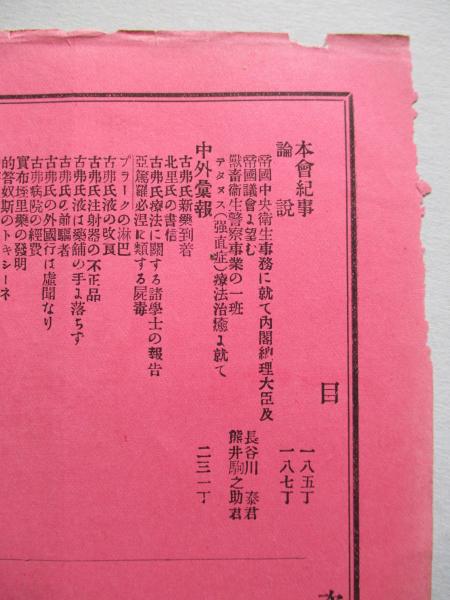 目
本會紀事　一八五丁
論說　一八七丁
帝國中央衛生事務に就て內閣總理大臣及
帝國議會に望む　長谷川泰君
獸畜衛生警察事業の一班　熊井駒之助君
テタヌス(强直症)療法治癒に就て
中外彙報　二三一丁
古弗氏新藥到着
北里氏の書信
古弗氏療法に關する諸學士の報告
亞篤羅必涅に類する屍毒
プラークの淋巴
古弗氏液の改良
古弗氏注射器の不正品
古弗氏液は藥舖の手に落ちす
古弗氏の前驅者
古弗氏の外國行は虛聞なり
古弗病院の經費
實布垤里藥の發明
的答奴斯のトキシーネ